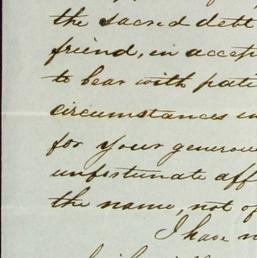 the sacred debt
friend, in accep
to bear with pati
circumstances in
for your generou
unfortunate aff
the name, not of
I have n